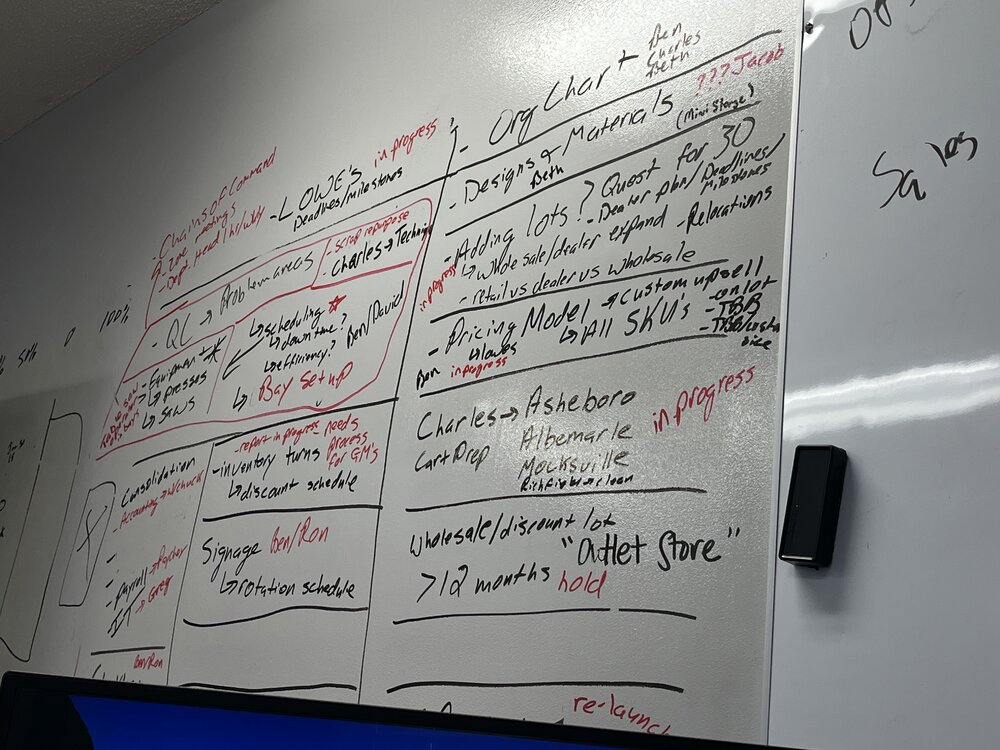 - Chains of Command
- zone meetings
- Dept. Head 1hr/wkly
- LOWE'S in progress
Deadlines/milestones
100%
0
- QC → Problem areas
- scrap repurpose
- Charles → Technology
- Equipment *
↳ presses
↳ saws
↳ scheduling *
↳ downtime?
↳ efficiency? Ben/David
↳ Bay Set up
Consolidation
- Accounting → w/chuck
- Payroll →
- IT → Greg
Ben/Ron
- report in progress needs
process
for GM's
- inventory turns
↳ discount schedule
Signage Ben/Ron
↳ rotation schedule
- Org Chart
Ben
Charles
Beth
- Designs & Materials ??? Jacob
Beth
(Mini Storage)
- Adding lots? Quest for 30
- Dealer plan/Deadlines/
Milestones
↳ wholesale/dealer expand - Relocations
in progress
- retail vs dealer vs wholesale
- Pricing Model → Custom upsell
↳ Lowes
↳ All SKU's
- on lot
- TBB
Ben in progress
Charles → Asheboro
Cart Prep
Albemarle
in progress
Mocksville
Richfield → clean
Wholesale/discount lot
"Outlet Store"
>12 months hold
re-launch
Sales